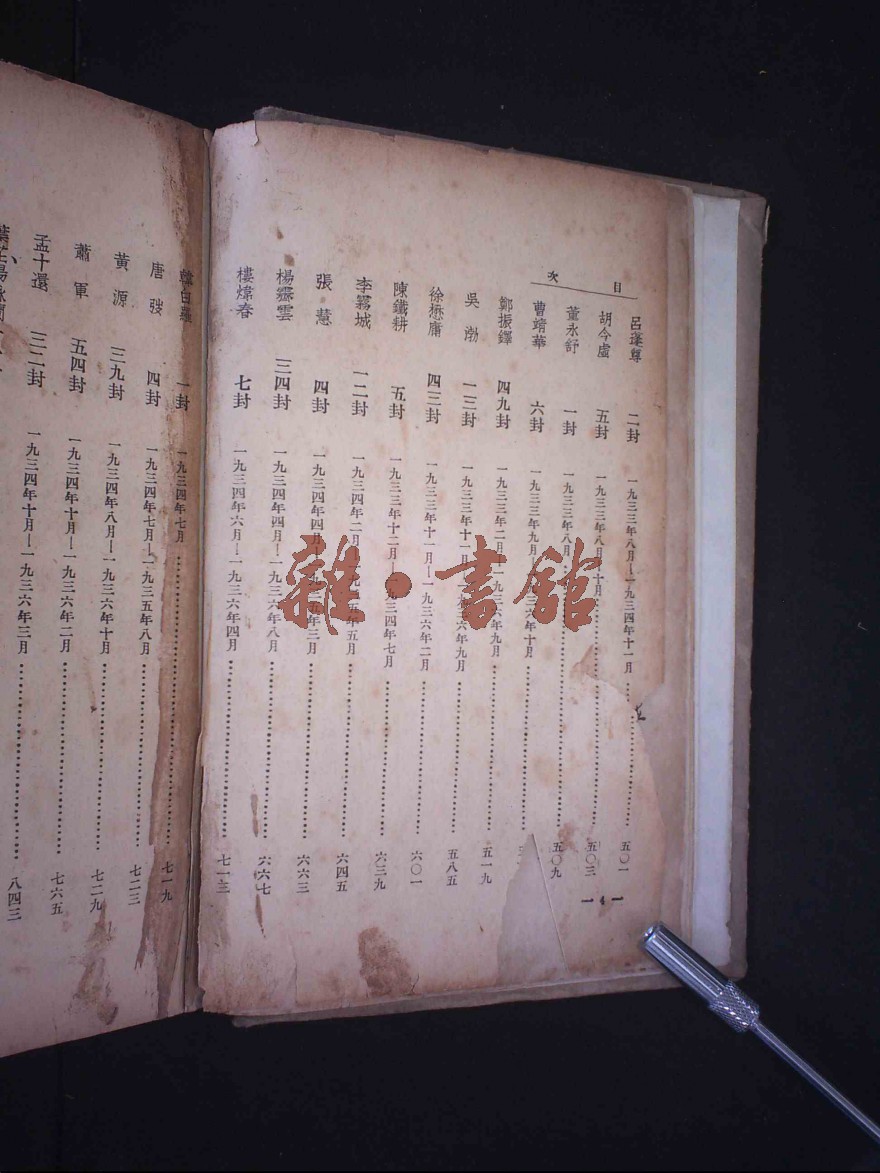 目次
呂蓬尊 二封 一九三三年八月—一九三四年十一月 五〇一
胡今虛 五封 一九三三年八月 十月 五〇三
董永舒 一封 一九三三年八月 五〇九
曹靖華 六封 一九三三年九月 三六年十月
鄭振鐸 四九封 一九三三年二月—一九三六年九月 五一九
吳渤 一三封 一九三三年十一月 三六年九月 五八五
徐懋庸 四三封 一九三三年十一月—一九三六年二月 六〇一
陳鐵耕 五封 一九三三年十二月—一九三四年七月 六三九
李霧城 一二封 一九三四年二月—一九三五年五月 六四五
張慧 四封 一九三四年四月—一九三五年三月 六六三
楊霽雲 三四封 一九三四年四月—一九三六年八月 六六七
樓煒春 七封 一九三四年六月—一九三六年四月 七一三
一
韓白羅 一封 一九三四年七月 七一九
唐弢 四封 一九三四年七月—一九三五年八月 七二三
黃源 三九封 一九三四年八月—一九三六年十月 七二九
蕭軍 五四封 一九三四年十月—一九三六年二月 七六五
孟十還 三二封 一九三四年十月—一九三六年三月 八四三
雜·書館